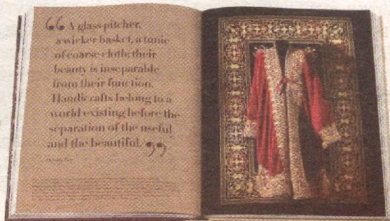 “ A glass pitcher,
a wicker basket, a tunic
of coarse cloth: their
beauty is inseparable
from their function.
Handicrafts belong to a
world existing before the
separation of the useful
and the beautiful. ”